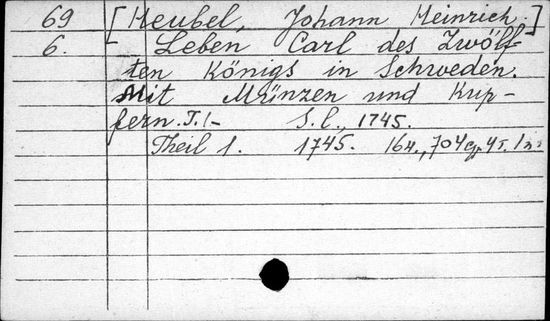 69 [Heubel, Johann Heinrich.]
6. Leben Carl des Zwölf-
ten Königs in Schweden.
Mit Münzen und Kup-
fern. T. 1- S. l., 1745.
Theil 1. 1745. 16 н., 704 с., 4 т. 1